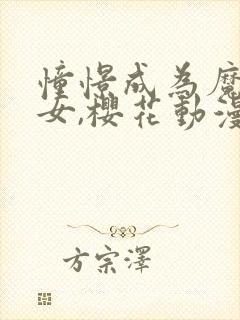 憧憬成為魔
女,櫻花動漫
方宗澤